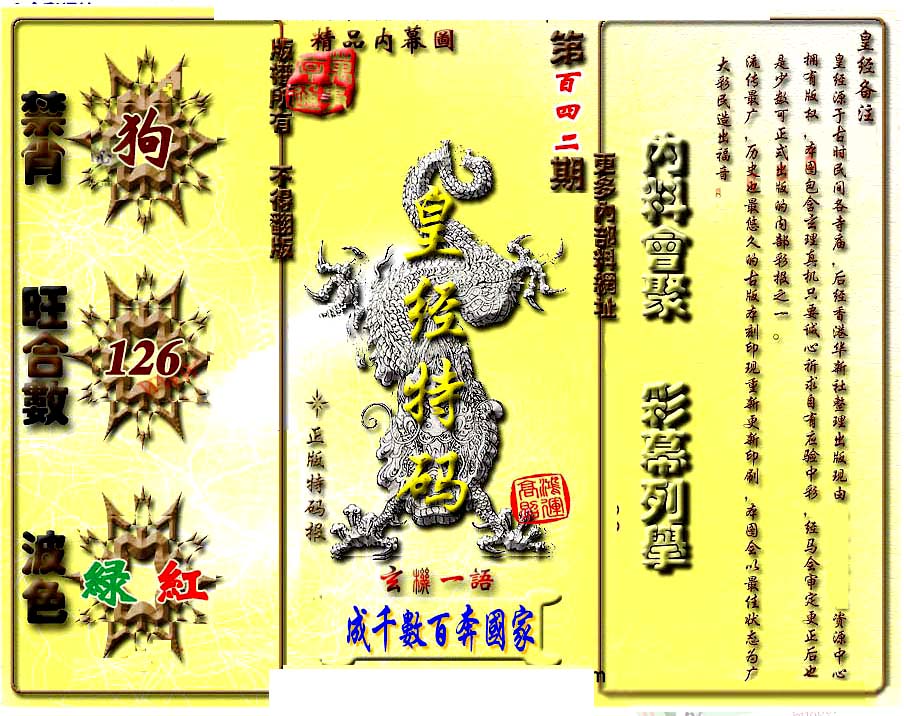 禁肖
狗
旺合數
126
波色
綠 紅
版權所有 不得翻版
精品內幕圖
第百四二期
皇经特码
正版特码报
鴻運高照
玄機一語
成千數百奔國家
更多內部料網址
內料會聚
彩幕列舉
皇经备注
皇经源于古时民间各寺庙,后经香港华新社整理出版现由 资源中心
拥有版权,本图包含玄理真机只要诚心祈求自有应验中彩,经马会审定更正后也
是少数可正式出版的内部彩报之一。
流传最广,历史也最悠久的古版本刻印现重新更新印刷,本图会以最佳状态为广
大彩民造出福音
m